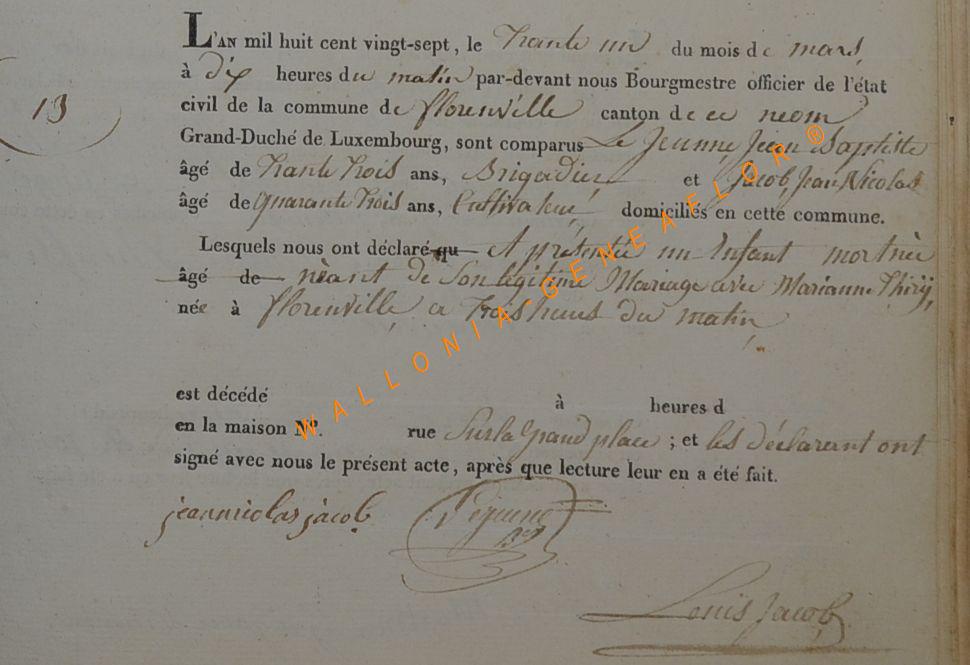 L'AN mil huit cent vingt-sept, le trante un du mois de mars
à dix heures du matin par-devant nous Bourgmestre officier de l'état
civil de la commune de florenville canton de ce neom
13
Grand-Duché de Luxembourg, sont comparus Le Jeunne Jean Baptiste
âgé de trante trois ans, Brigadier et Jacob Jean Nicolas
âgé de quarante trois ans, Cultivateur domiciliés en cette commune.
Lesquels nous ont déclaré qu et présentée un Enfant mortnée
âgé de nèant de Son légitime Mariage avec Marianne Thiry,
née à florenville a trois heurs du matin
est décédé à heures d
en la maison No. rue Sur la Grand place ; et les déclarent ont
signé avec nous le présent acte, après que lecture leur en a été fait.
jean nicolas jacob Lejeune
Louis Jacob
WALLONIA-GENEAELOR ®